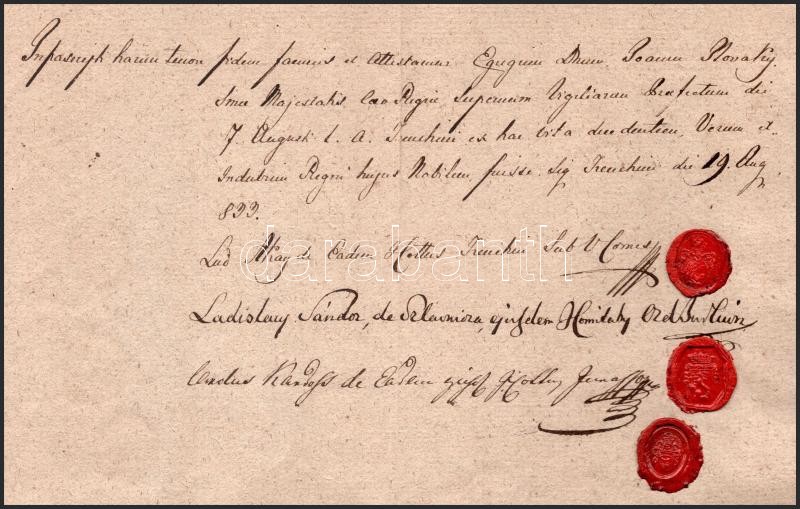 Infrascripti harum tenore fidem facimus et Attestamur Egregium Dnum Joann Slovaky
Suae Majestatis Cao Regiae Supremum Vigiliarum Praefectum die
7. Augusti c. a. Trenchinii ex hac vita decedentem, Verum et
Indubium Regni hujus Nobilem fuisse. Sig Trenchinii die 19. Aug
833.
Lud de Eadem I Cottus Trenchin Sub V Comes
darabanth
Ladislaus Sándor, de Szlavnicza, ejusdem Comitatus Ord Judlium
Andreas Kardoss de Eadem ejusd I Cottus Jurassor